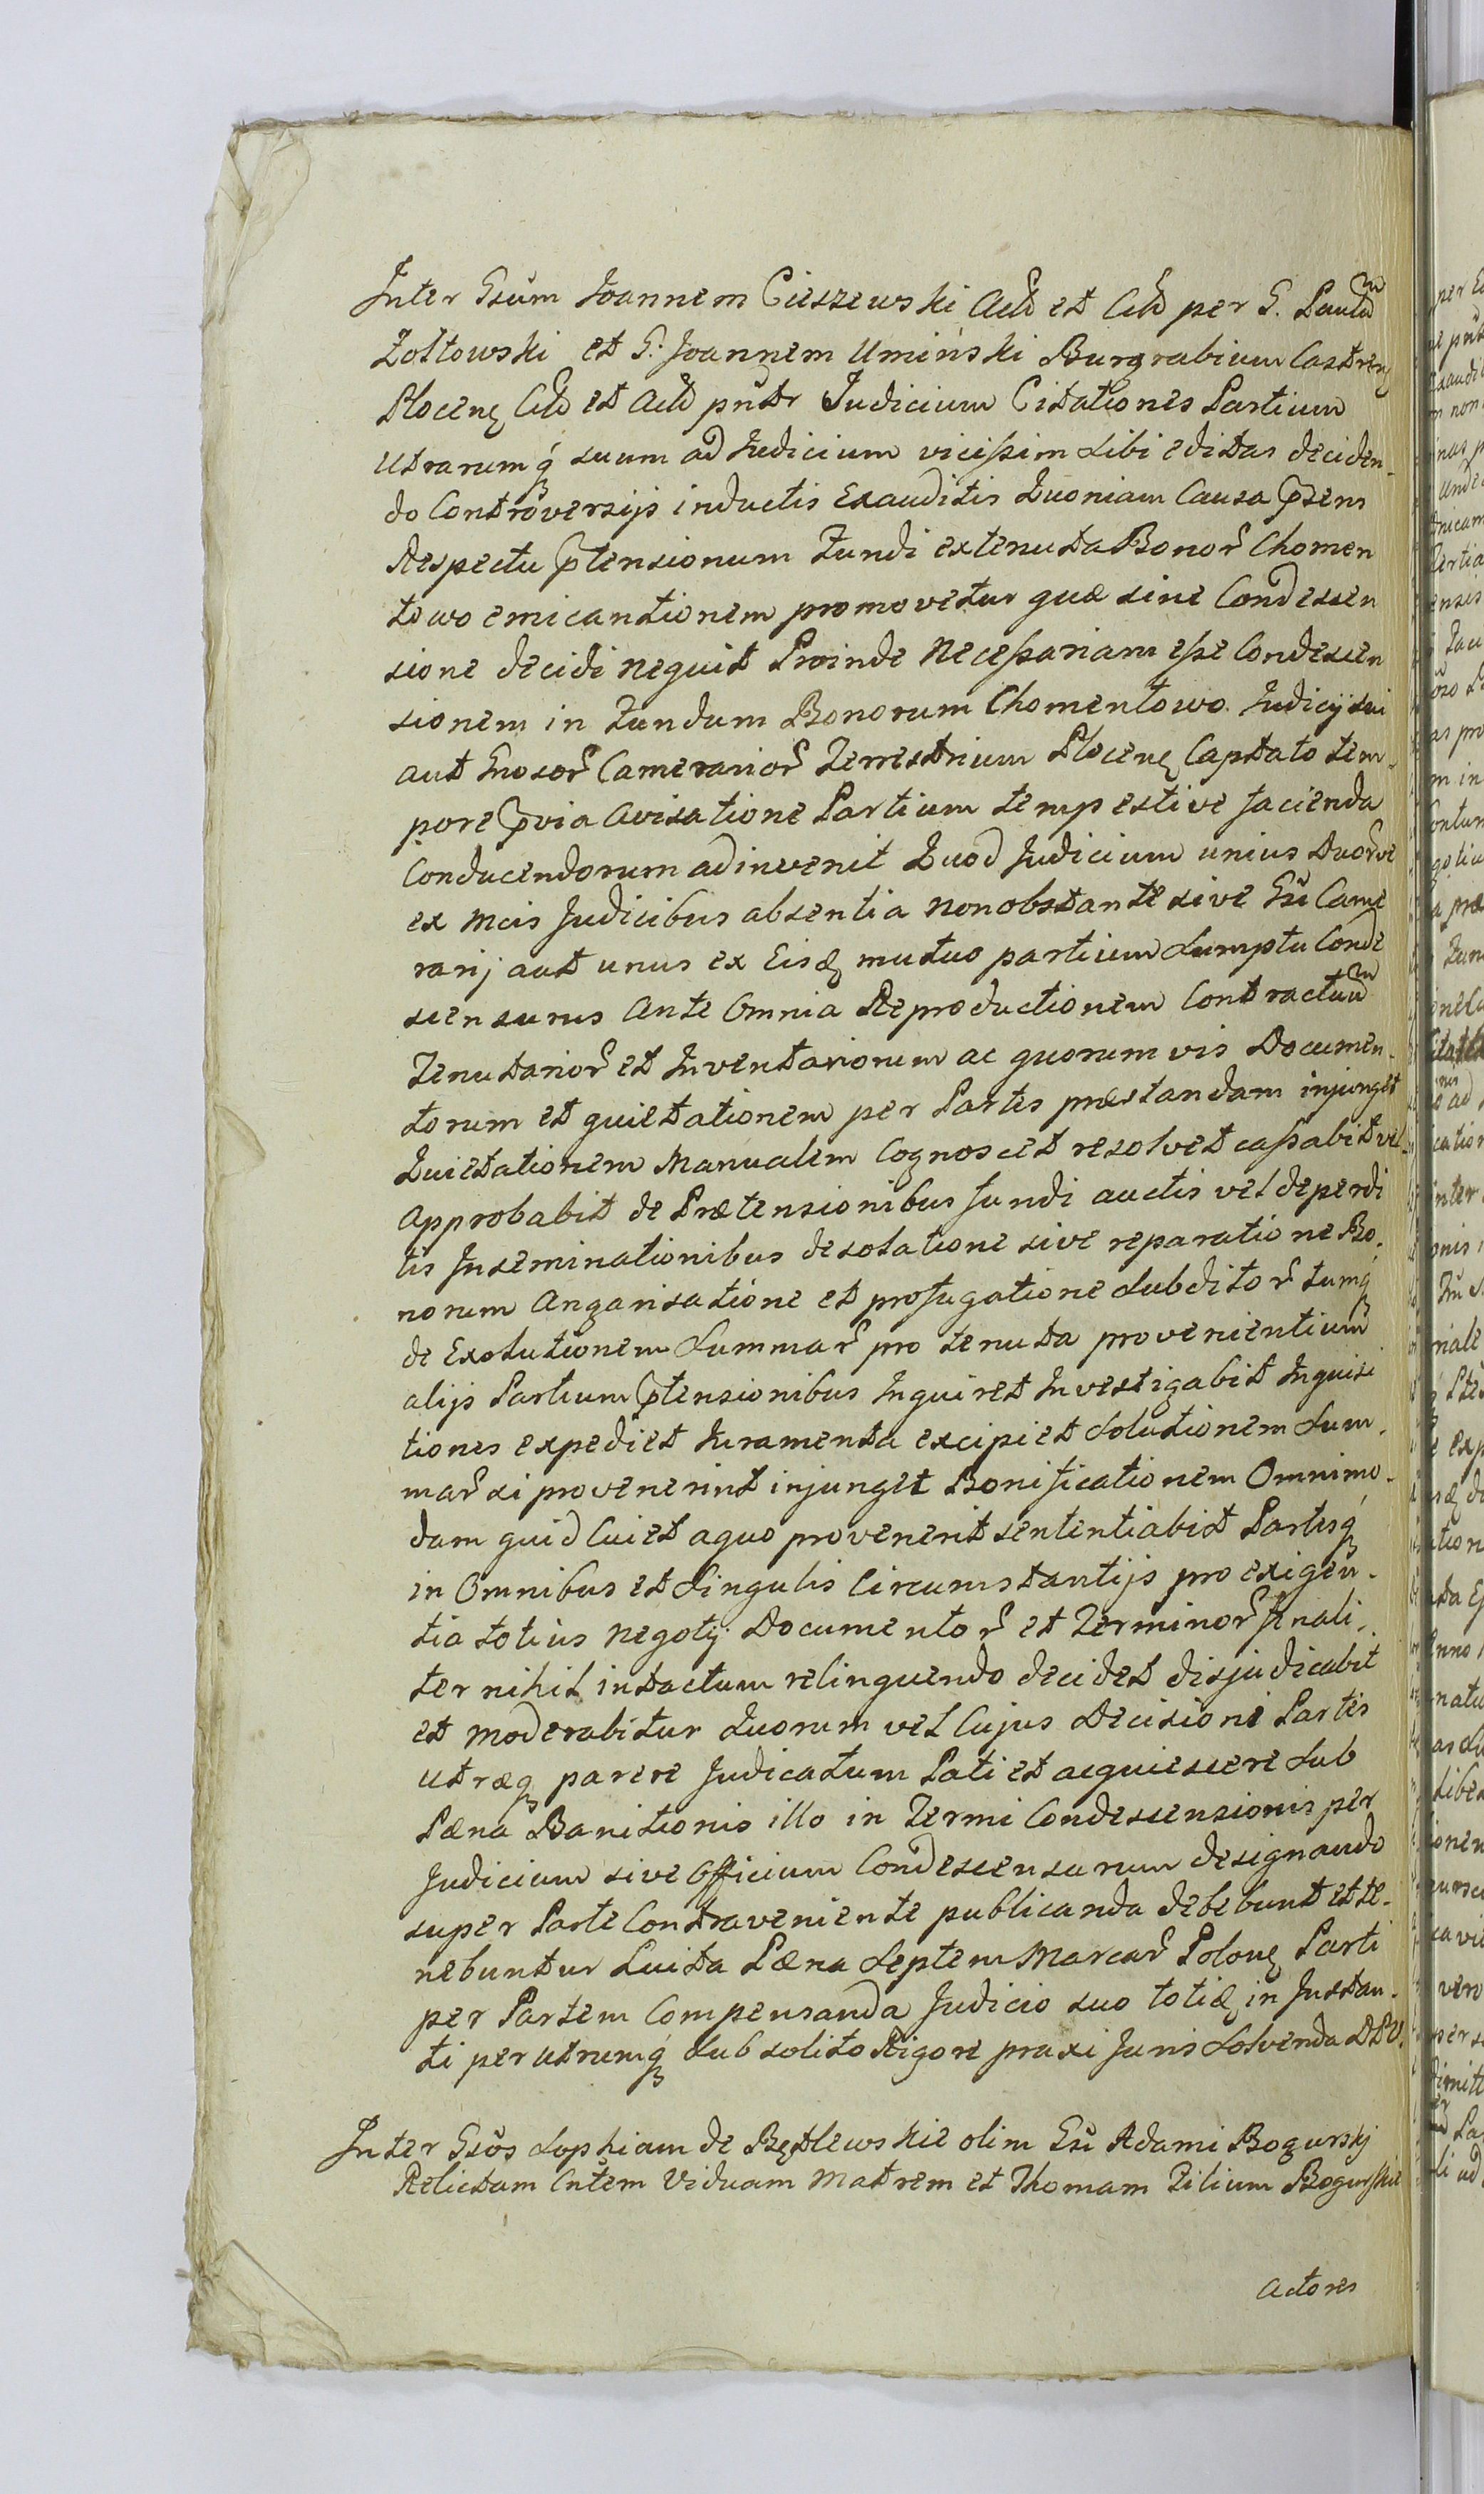 Inter Gsum Joannem Cieszewski Actt et Citt per G. Paulum
Zołtowski et G. Joannem Uminski Burgrabium Castren
Plocen Citt et Actt pntr Judicium Citationes Partium
utrarumq suum ad Judicium vicissim sibi editas deciden-
do Controversijs inductis Exauditis Quoniam Causa psens
Respectu ptensionum Fundi extenuta Bonor Chomen
towo emicantionem promovetur quæ sine Condescen
sione decidi nequit Proinde Necessariam esse Condescen
sionem in Fundum Bonorum Chomentowo Judicij sui
aut Gnosor Camerarior Terrestrium Plocen Captato tem-
pore pvia avisatione Partium tempestive facienda
Conducendorum adinvenit Quod Judicium unius Duorve
ex Mcis Judicibus absentia non obstante sive Gsi Came
rarij aut unus ex Eisd mutuo partium sumptu Conde
scensurus Ante Omnia Reproductionem Contractuum
Tenutarior et Inventariorum ac quorumvis Documen-
torum et quietationem per Partes præstandam injunget
Quietationem Manualem Cognoscet resolvet cassabit vel
Approbabit de Prætensionibus fundi auctis vel deperdi
tis Inseminationibus desolatione sive reparatione Bo-
norum Angarisatione et profugatione subditor tumq
de Exolutionem Summar pro tenuta provenientium
alijs Partium ptensionibus Inquiret Investigabit Inquisi
tiones expediet Juramenta excipiet Solutionem Sum-
mar si provenerint injunget Bonificationem Omnimo-
dam quid Cui et a quo provenerit sententiabit Partesq
in Omnibus et Singulis Circumstantijs pro exigen-
tia totius Negotij Documentor et Terminor finali-
ter nihil intactum relinquendo decidet disjudicabit
et Moderabitur Quorum vel Cujus Decisioni Partes
utræq parere Judicatum Pati et acquiescere sub
Pæna Banitionis illo in Termi Condescensionis per
Judicium sive Officium Condescensurum designando
super Parte Contraveniente publicanda debebunt et te-
nebuntur Luita Pæna Septem Marcar Polon Parti
per Partem Compensanda Judicio suo toties in Instan-
ti per utrumq sub solito Rigore praxi Juris Solvenda DPU.
Inter Gsos Sophiam de Bętlewskie olim Gsi Adami Bogurskj
Relictam Cntem Viduam Matrem et Thomam Filium Bogurskie
Actores